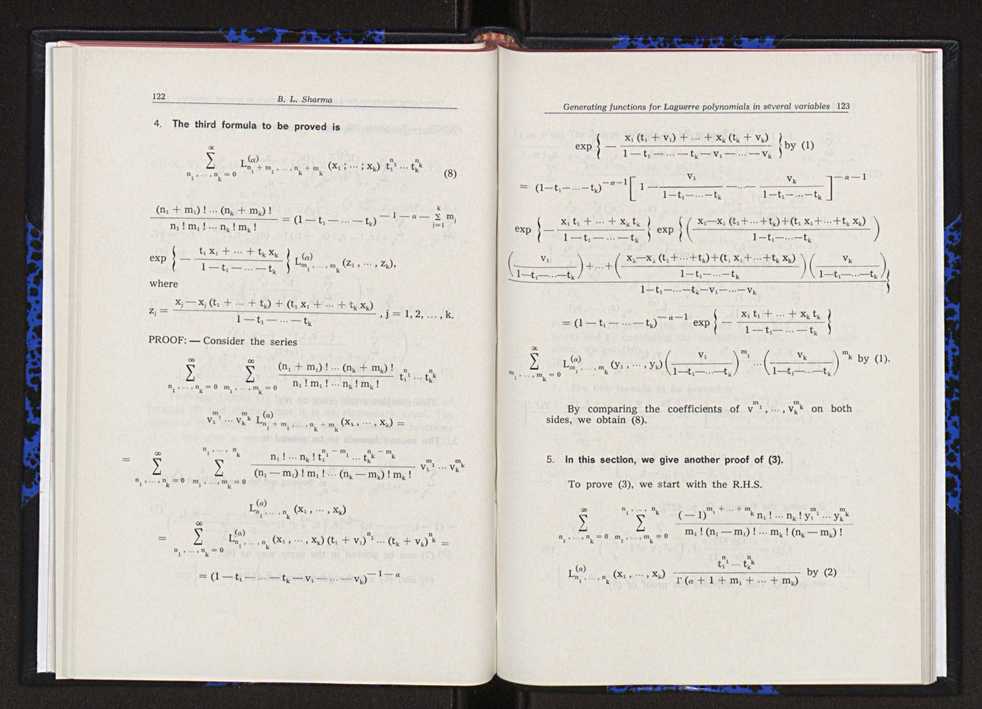 122 B. L. Sharma
4. The third formula to be proved is
∞
Σ L^{(α)}_{n₁ + m₁ , ... , n_k + m_k} (x₁ ; ··· ; x_k) t₁^{n₁} ... t_k^{n_k} (8)
n₁ , ... , n_k = 0
(n₁ + m₁) ! ... (n_k + m_k) ! / n₁ ! m₁ ! ... n_k ! m_k ! = (1 — t₁ — ... — t_k)^{— 1 — α — Σ_{j=1}^{k} m_j}
exp { — (t₁ x₁ + ··· + t_k x_k) / (1 — t₁ — ... — t_k) } L^{(α)}_{m₁ , ... , m_k} (z₁ , ... , z_k),
where
z_j = (x_j — x_j (t₁ + ... + t_k) + (t₁ x₁ + ··· + t_k x_k)) / (1 — t₁ — ... — t_k) , j = 1, 2, ... , k.
PROOF: — Consider the series
∞ ∞
Σ Σ (n₁ + m₁) ! ... (n_k + m_k) ! / n₁ ! m₁ ! ... n_k ! m_k ! t₁^{n₁} ... t_k^{n_k}
n₁ , ... , n_k = 0 m₁ , ... , m_k = 0
v₁^{m₁} ... v_k^{m_k} L^{(α)}_{n₁ + m₁ , ... , n_k + m_k} (x₁ , ··· , x_k) =
∞ n₁ , ... , n_k
= Σ Σ n₁ ! ... n_k ! t₁^{n₁ — m₁} ... t_k^{n_k — m_k} / (n₁ — m₁) ! m₁ ! ... (n_k — m_k) ! m_k ! v₁^{m₁} ... v_k^{m_k}
n₁ , ... , n_k = 0 m₁ , ... , m_k = 0
L^{(α)}_{n₁ , ... , n_k} (x₁ , ··· , x_k)
∞
= Σ L^{(α)}_{n₁ , ... , n_k} (x₁ , ··· , x_k) (t₁ + v₁)^{n₁} ... (t_k + v_k)^{n_k} =
n₁ , ... , n_k = 0
= (1 — t₁ — ... — t_k — v₁ — ... — v_k)^{—1 — α}
Generating functions for Laguerre polynomials in several variables 123
exp { — (x₁ (t₁ + v₁) + ... + x_k (t_k + v_k)) / (1 — t₁ — ... — t_k — v₁ — ... — v_k) } by (1)
= (1—t₁—...—t_k)^{—α—1} [ 1 — v₁ / (1—t₁—...—t_k) — ... — v_k / (1—t₁—...—t_k) ]^{—α—1}
exp { — (x₁ t₁ + ··· + x_k t_k) / (1 — t₁ — ... — t_k) } exp { ( (x₁—x₁ (t₁+···+t_k)+(t₁ x₁+···+t_k x_k)) / (1—t₁—...—t_k) )
( v₁ / (1—t₁—...—t_k) ) +...+ ( (x_k—x_k (t₁+···+t_k)+(t₁ x₁+···+t_k x_k)) / (1—t₁—...—t_k) ) ( v_k / (1—t₁—...—t_k) )
1—t₁—...—t_k—v₁—...—v_k }
= (1 — t₁ — ... — t_k)^{—α—1} exp { — (x₁ t₁ + ... + x_k t_k) / (1—t₁—...—t_k) }
∞
Σ L^{(α)}_{m₁ , ... , m_k} (y₁ , ... , y_k) ( v₁ / (1—t₁—...—t_k) )^{m₁} ... ( v_k / (1—t₁—...—t_k) )^{m_k} by (1).
m₁ , ... , m_k = 0
By comparing the coefficients of v^{m₁} , ... , v_k^{m_k} on both
sides, we obtain (8).
5. In this section, we give another proof of (3).
To prove (3), we start with the R.H.S.
∞ n₁ , ... , n_k
Σ Σ (— 1)^{m₁ + ... + m_k} n₁ ! ... n_k ! y₁^{m₁} ... y_k^{m_k} / m₁ ! (n₁ — m₁) ! ... m_k ! (n_k — m_k) !
n₁ , ... , n_k = 0 m₁ , ... , m_k = 0
L^{(α)}_{n₁ , ... , n_k} (x₁ , ··· , x_k) t₁^{n₁} ... t_k^{n_k} / Γ (α + 1 + m₁ + ... + m_k) by (2)